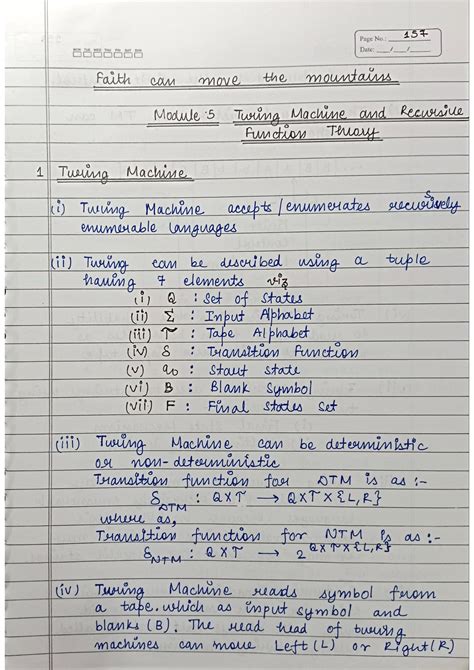 Page No.: 157
Date: __/__/__
MON TUE WED THU FRI SAT SUN
Faith can move the mountains
Module:5 Turing Machine and Recursive
Function Theory
1 Turing Machine
(i) Turing Machine accepts/enumerates recursively
enumerable languages
(ii) Turing can be described using a tuple
having 7 elements viz
(i) Q : Set of States
(ii) Σ : Input Alphabet
(iii) T : Tape Alphabet
(iv) δ : Transition Function
(v) q₀ : Start state
(vi) B : Blank Symbol
(vii) F : Final States Set
(iii) Turing Machine can be deterministic
or non-deterministic
Transition function for DTM is as :-
δ_DTM : Q×T → Q×T×{L,R}
where as,
Transition function for NTM is as :-
δ_NTM : Q×T → 2^Q×T×{L,R}
(iv) Turing Machine reads symbol from
a tape. which as input symbol and
blanks (B). The read head of turing
machines can move Left(L) or Right(R)